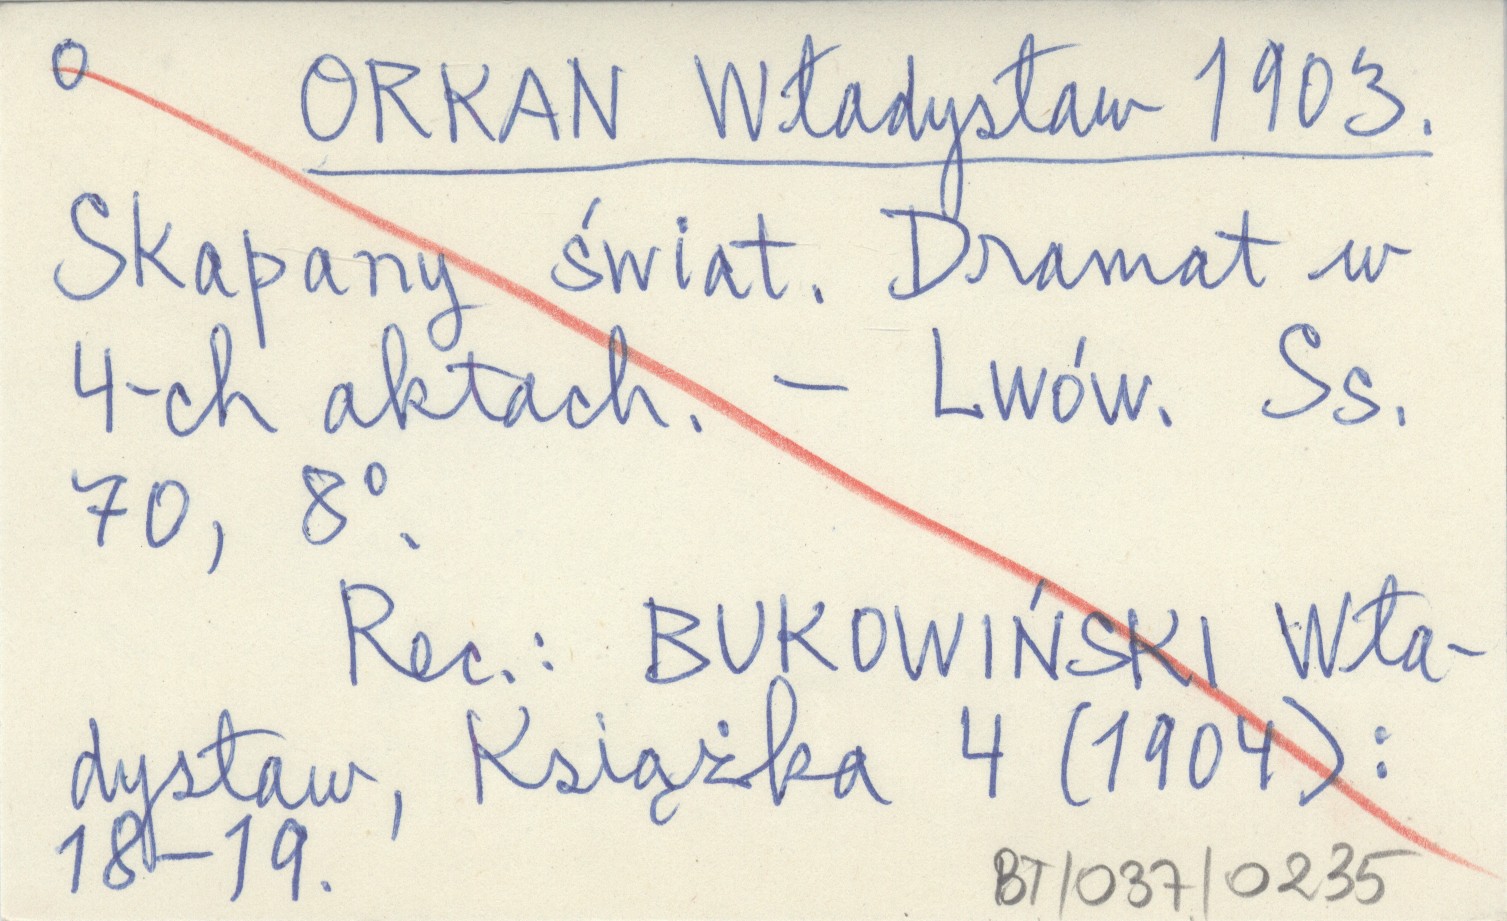 O ORKAN Władysław 1903.
Skapany świat. Dramat w
4-ch aktach. — Lwów. Ss.
70, 8°.
Rec.: BUKOWIŃSKI Wła-
dysław, Książka 4 (1904):
18-19.
BT/037/0235